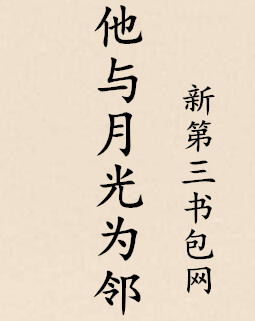 他与月光为邻
新第三书包网